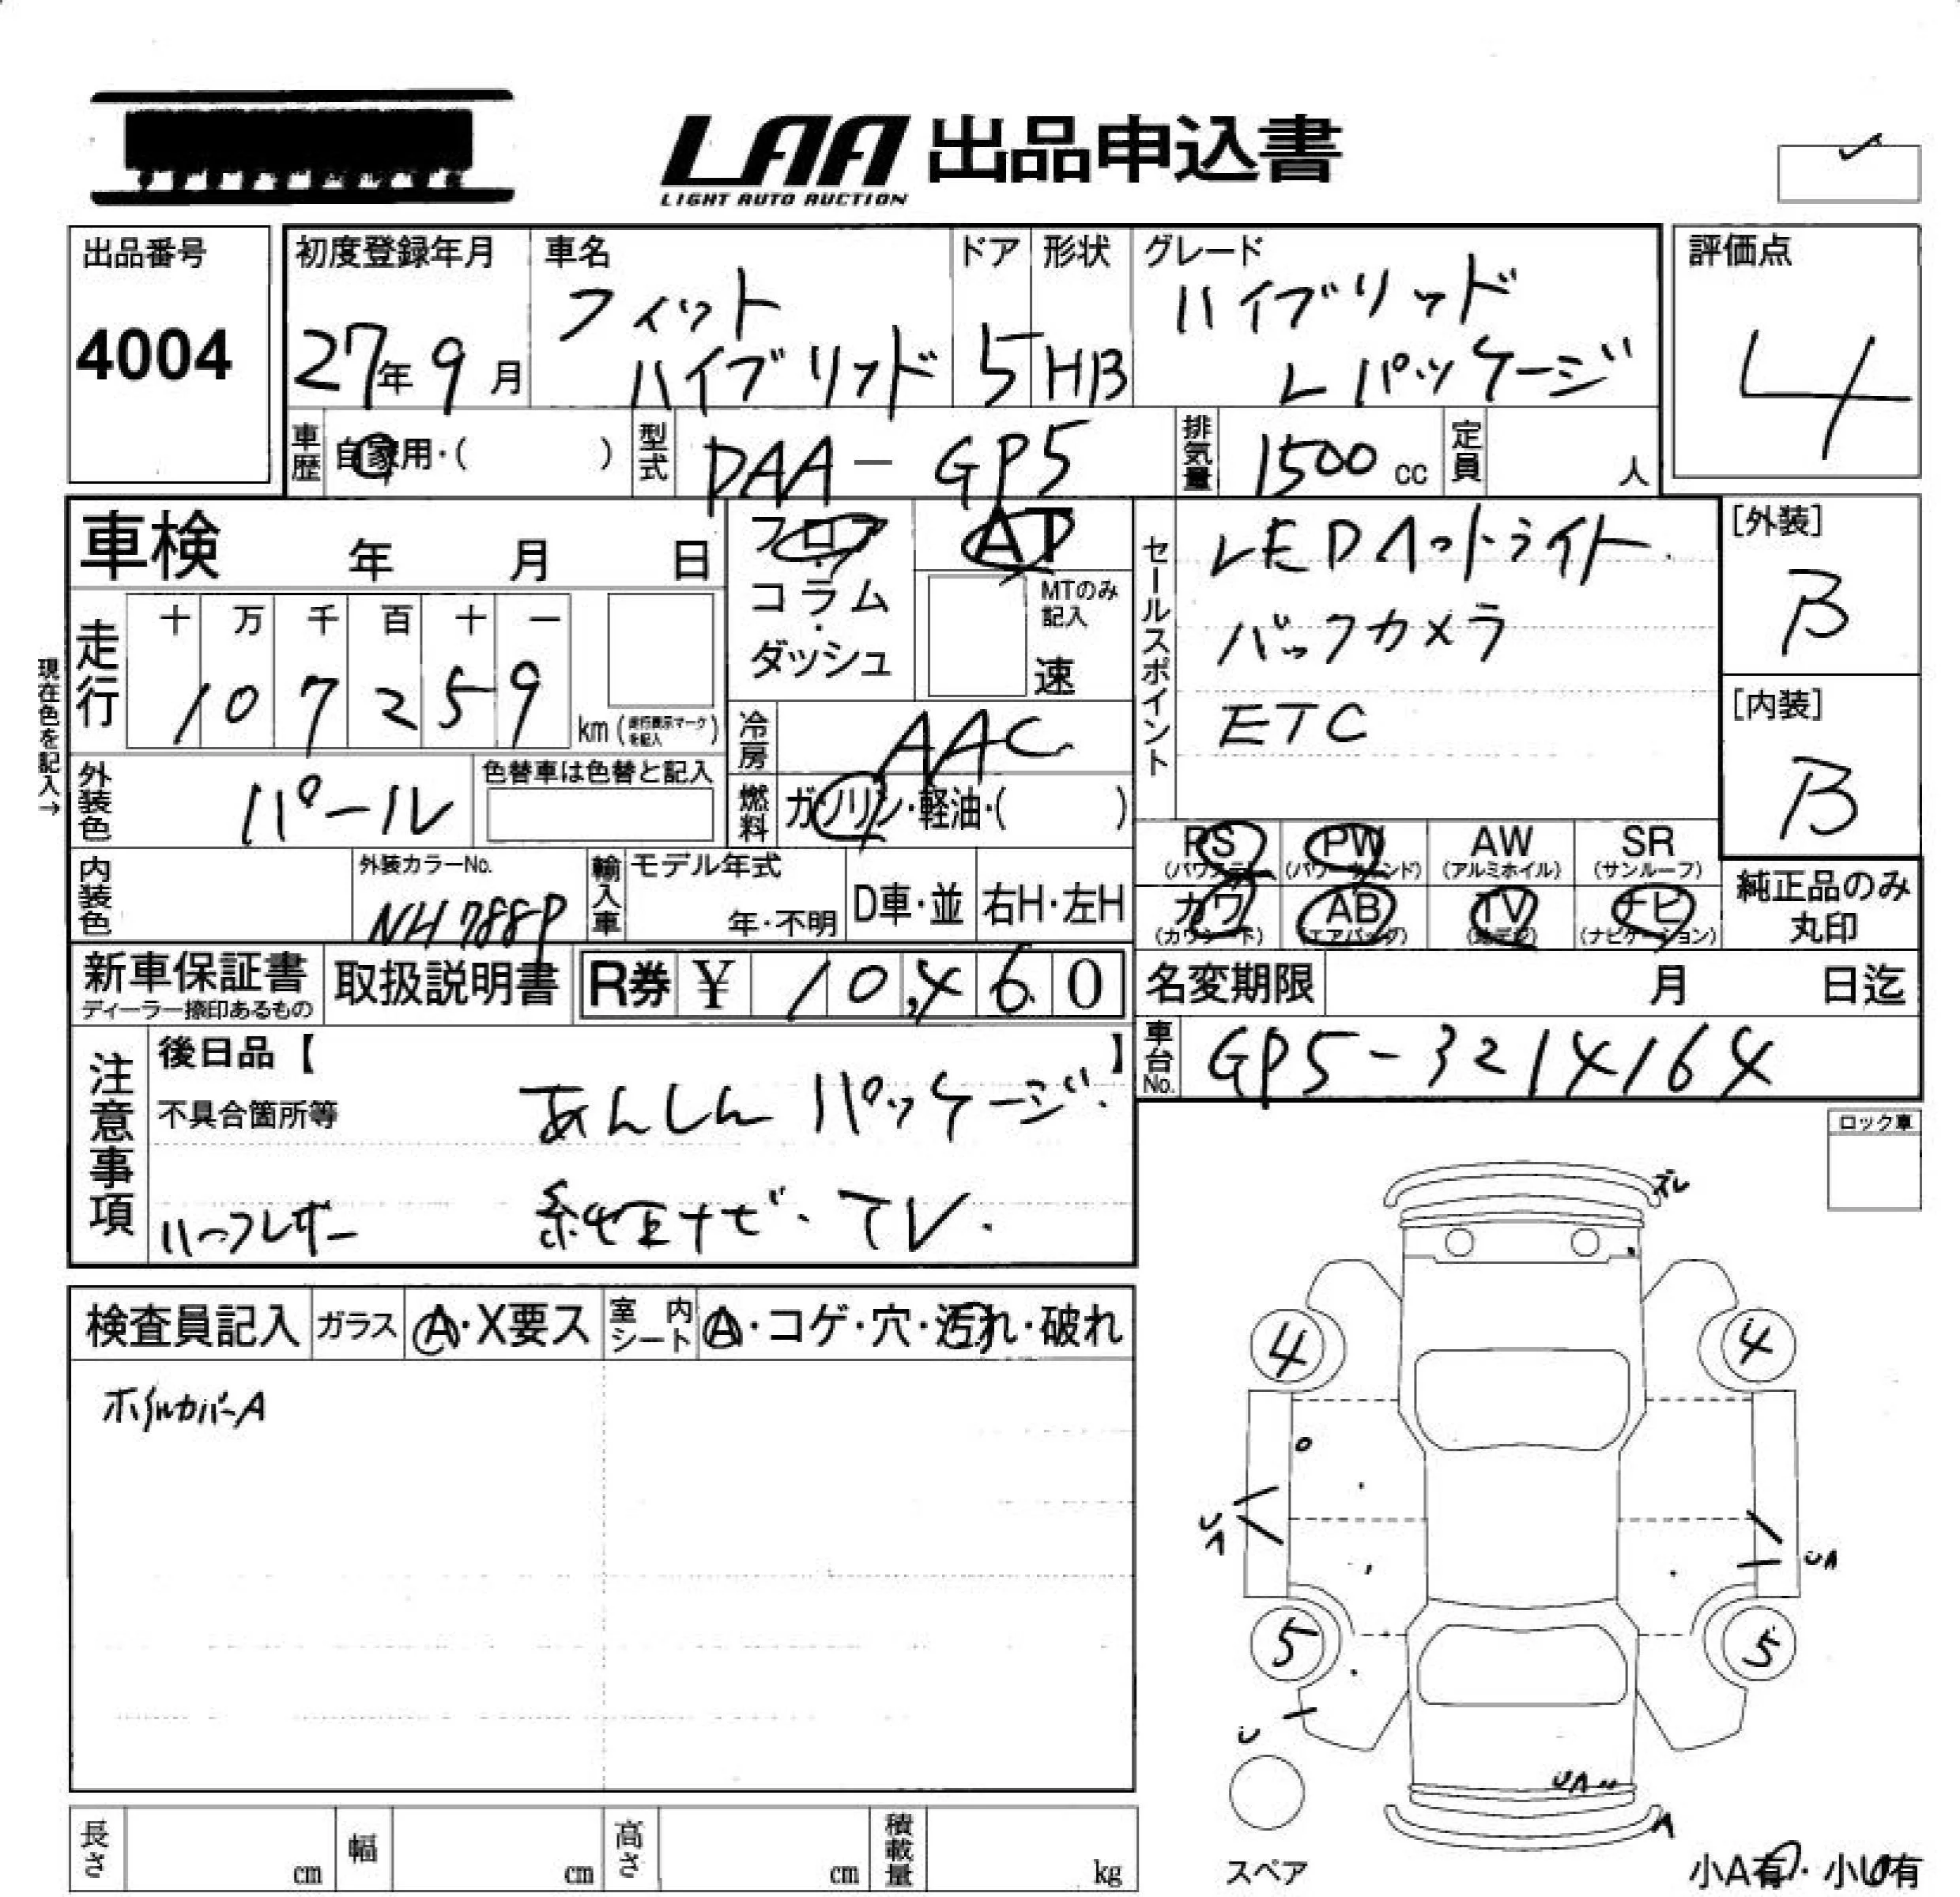 LAA 出品申込書
LIGHT AUTO AUCTION
出品番号
4004
初度登録年月
27年9月
車名
フィット
ハイブリッド
ドア
5
形状
HB
グレード
ハイブリッド
Lパッケージ
評価点
4
車歴
自家用・( )
型式
DAA-GP5
排気量
1500cc
定員
人
車検 年 月 日
フロア
・
コラム
・
ダッシュ
AT
MTのみ
記入
速
セールスポイント
LEDヘットライト
バックカメラ
ETC
[外装]
B
[内装]
B
現在色を記入→
走行
十 万 千 百 十 一
1 0 7 2 5 9
km (走行表示マークを記入)
冷房
AAC
燃料
ガソリン・軽油・( )
外装色
パール
色替車は色替と記入
内装色
外装カラーNo.
NH788P
輸入車
モデル年式
年・不明
D車・並
右H・左H
PS
(パワステ)
PW
(パワーウィンド)
AW
(アルミホイル)
SR
(サンルーフ)
カワ
(カワシート)
AB
(エアバッグ)
TV
(地デジ)
ナビ
(ナビゲーション)
純正品のみ
丸印
新車保証書
ディーラー捺印あるもの
取扱説明書
R券 ¥ 10,460
名変期限 月 日迄
車台No.
GP5-3214164
注意事項
後日品【 】
不具合箇所等
あんしんパッケージ.
ハーフレザー
純正ナビ・TV.
ロック車
ズレ
検査員記入
ガラス
A・X要ス
室内シート
A・コゲ・穴・汚れ・破れ
ホイルカバーA
4
4
UA
UA
5
5
U
UA
A
スペア
小A有・小U有
長さ cm
幅 cm
高さ cm
積載量 kg